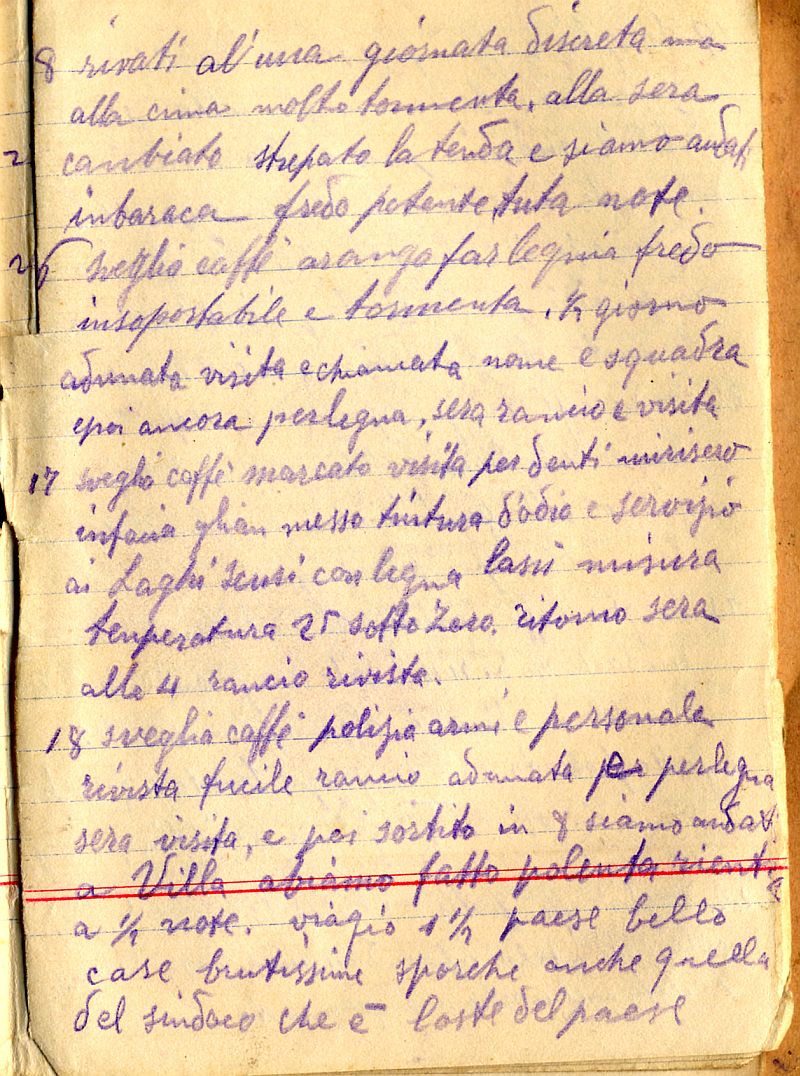 8 rivati al'una giornata discreta ma
alla cima molto tormenta, alla sera
2 canbiato strepato la tenda e siamo andati
inbaraca fredo potente, tuta note.
26 sveglia caffè arango far legnia fredo
insoportabile e tormenta, ½ giorno
adunata visita e chiamata nome e squadra
epoi ancora perlegna, sera rancio e visita
17 sveglia caffè marcato visita per denti mirisero
infacia glian messo tintura d'odio e servizio
ai Laghi Seusi con legna lassù misura
tenperatura 25 sotto Zero. ritorno sera
alle 4 rancio rivista.
18 sveglia caffè polizia armi e personale
rivista fucile rancio adunata per perlegna
sera visita, e poi sortito in 8 siamo andati
a Villa abiamo fatto polenta
a ½ note. viagio 1 ½ paese bello
case brutissime sporche anche quella
del sindoco che è loste del paese